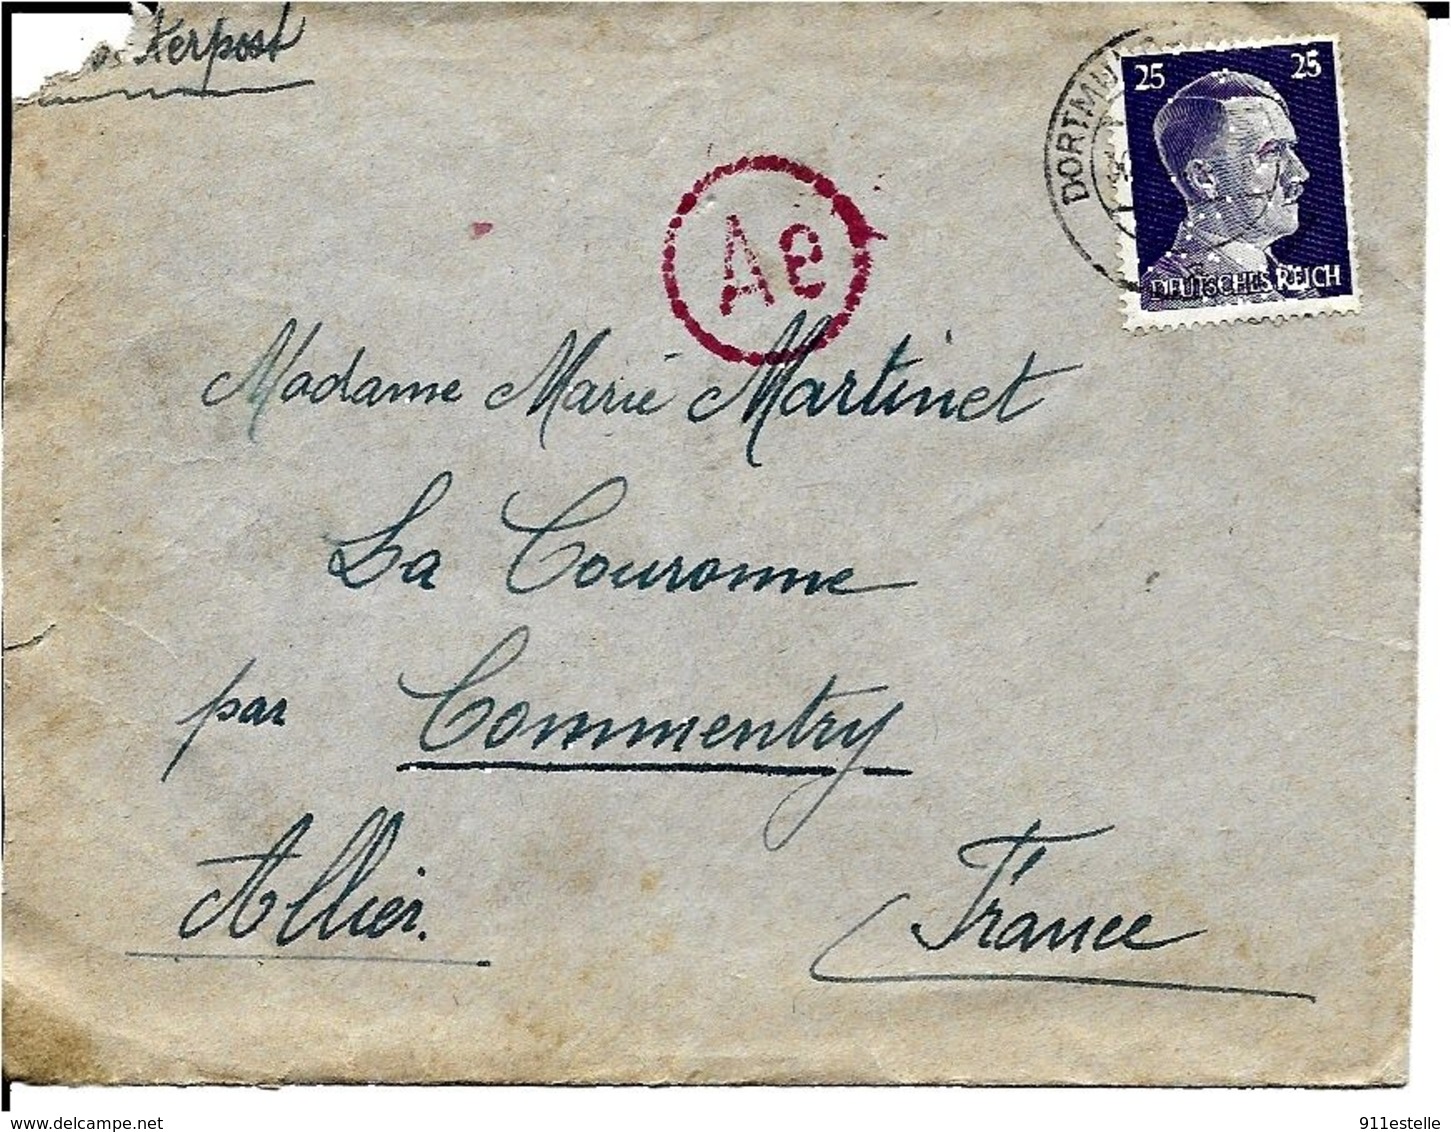 DORTMUND
25 25
DEUTSCHES REICH
Ae
Madame Marie Martinet
La Couronne
par Commentry
Allier.
France
delcampe.net
911estelle